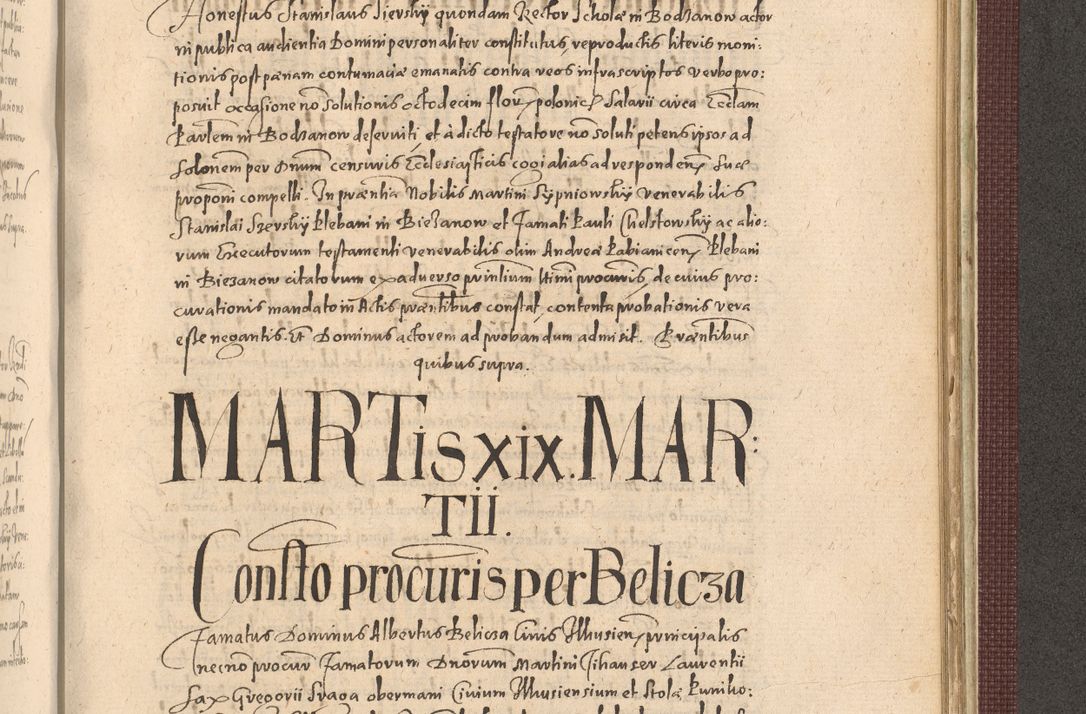 Honestus Stanislaus Sierskÿ quondam Rector Scholæ in Bodzanow actor
in publica audientia Domini personaliter constitutus, reproductis literis moni:
tionis post pænam contumaciæ emanatis contra reos infrascriptos verbo pro:
posuit occasione nō solutionis octodecim flor. polonic. Salarii circa Eccl̄am
Parlēm in Bodzanow deserviti et à dicto testatore nō soluti petens ipsos ad
Solōnem per Dnum censuris Ecclesiasticis cogi alias ad responden. suæ
proponi compelli. In præntia Nobilis Martini Sÿpniowskÿ venerabilis
Stanislai Szerskÿ Plebani in Biezanow et famati Pauli Chelstowskÿ ac alio:
rum Executorum testamenti venerabilis olim Andreæ Pabianicen. Plebani
in Biezanow citatorum ex adverso p̄ntium ltimi procuris, de cuius pro:
curationis mandato in Actis præntibus constat, contenta probationis vera
esse negantis. Et Dominus actorem ad probandum admisit. Præntibus
quibus supra.
MARTis xix. MAR:
Tii.
Consto procuris per Belicza
Famatus Dominus Albertus Belicza Civis Illkusien. principalis
necnō procur Famatorum Dnorum Martini Tihauser Laurentii
Sax Gregorii Praga obermani Civium Illkusiensium et Stolæ